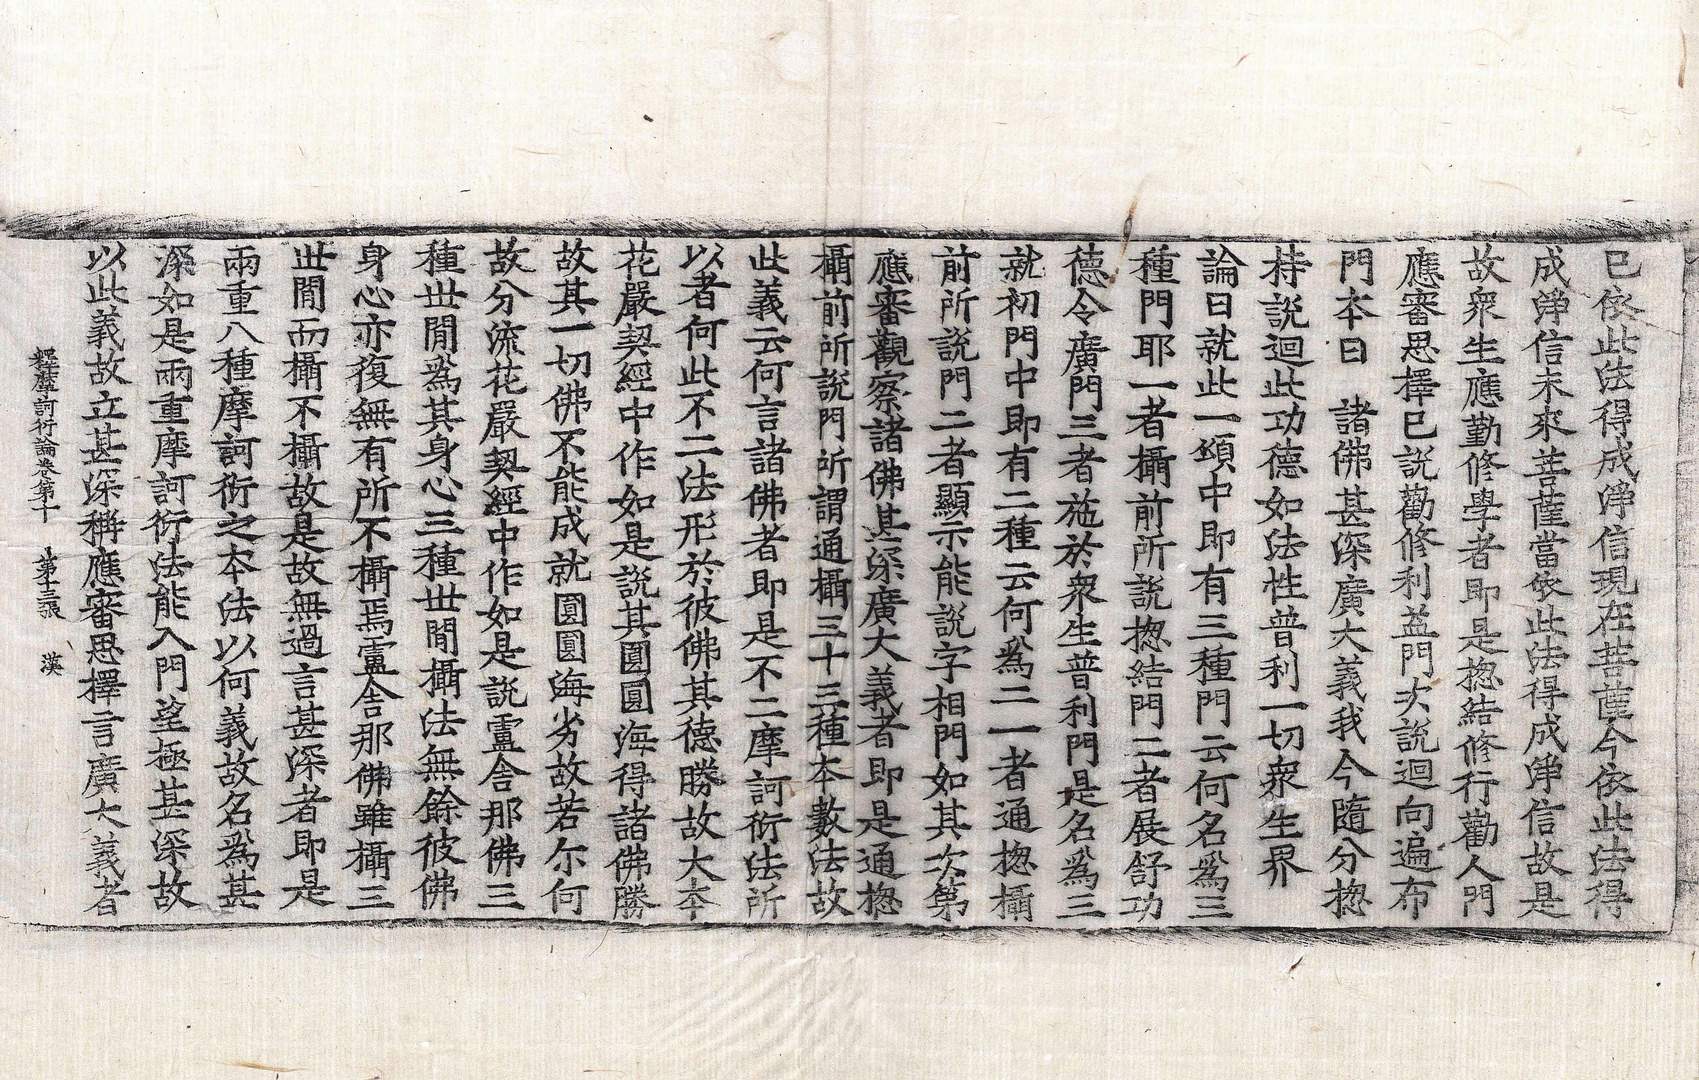 已依此法得成淨信現在菩薩今依此法得
成淨信未來菩薩當依此法得成淨信故是
故衆生應勤修學者即是揔結修行勸人門
應審思擇已說勸修利益門次說迴向遍布
門本曰 諸佛甚深廣大義我今隨分揔
持說迴此功德如法性普利一切衆生界
論曰就此一頌中即有三種門云何名爲三
種門耶一者攝前所說揔結門二者展舒功
德令廣門三者施於衆生普利門是名爲三
就初門中即有二種云何爲二一者通揔攝
前所說門二者顯示能說字相門如其次第
應審觀察諸佛甚深廣大義者即是通揔
攝前所說門所謂通攝三十三種本數法故
此義云何言諸佛者即是不二摩訶衍法所
以者何此不二法形於彼佛其德勝故大本
花嚴契經中作如是說其圓圓海得諸佛勝
故其一切佛不能成就圓圓海劣故若尒何
故分流花嚴契經中作如是說盧舍那佛三
種世間爲其身心三種世間攝法無餘彼佛
身心亦復無有所不攝焉盧舍那佛雖攝三
世間而攝不攝故是故無過言甚深者即是
兩重八種摩訶衍之本法以何義故名爲甚
深如是兩重摩訶衍法能入門望極甚深故
以此義故立甚深稱應審思擇言廣大義者
釋摩訶衍論卷第十 第十三張 漢